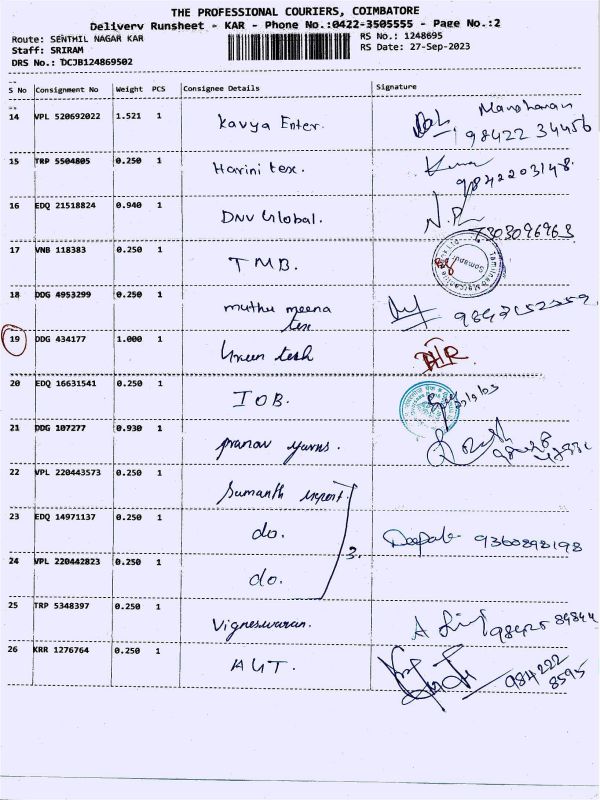 THE PROFESSIONAL COURIERS, COIMBATORE
Delivery Runsheet - KAR - Phone No.:0422-3505555 - Page No.:2
Route: SENTHIL NAGAR KAR
RS No.: 1248695
Staff: SRIRAM
RS Date: 27-Sep-2023
DRS No.: DCJB124869502
S No Consignment No Weight PCS Consignee Details Signature
14 VPL 520692022 1.521 1 Kavya Enter. Manoharan
98422 34456
15 TRP 5504805 0.250 1 Harini tex.
9842203148
16 EDQ 21518824 0.940 1 DNV Global. N.P
7303096963
17 VNB 118383 0.250 1 TMB.
18 DDG 4953299 0.250 1 muthu meena
tex
19 DDG 434177 1.000 1 Green tech
20 EDQ 16631541 0.250 1 IOB.
21 DDG 107277 0.930 1 pranav yarns.
22 VPL 220443573 0.250 1 Sumanth export.
23 EDQ 14971137 0.250 1 do. 3. Deepak 9360898198
24 VPL 220442823 0.250 1 do.
25 TRP 5348397 0.250 1 Vigneswaran. 98425 89844
26 KRR 1276764 0.250 1 AUT. 984 222
8595